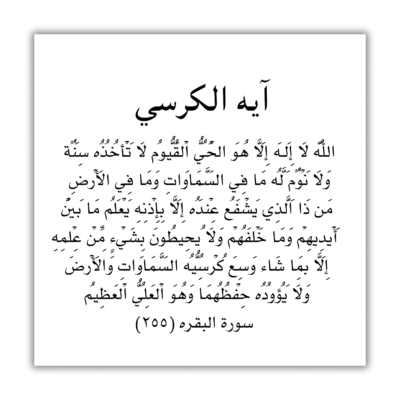 آيه الكرسي
اللَّهُ لَا إِلَـهَ إِلَّا هُوَ الْحَيُّ الْقَيُّومُ لَا تَأْخُذُهُ سِنَةٌ
وَلَا نَوْمٌ لَّهُ مَا فِي السَّمَاوَاتِ وَمَا فِي الْأَرْضِ
مَن ذَا الَّذِي يَشْفَعُ عِنْدَهُ إِلَّا بِإِذْنِهِ يَعْلَمُ مَا بَيْنَ
أَيْدِيهِمْ وَمَا خَلْفَهُمْ وَلَا يُحِيطُونَ بِشَيْءٍ مِّنْ عِلْمِهِ
إِلَّا بِمَا شَاء وَسِعَ كُرْسِيُّهُ السَّمَاوَاتِ وَالْأَرْضَ
وَلَا يَؤُودُهُ حِفْظُهُمَا وَهُوَ الْعَلِيُّ الْعَظِيمُ
سورة البقره (٢٥٥)